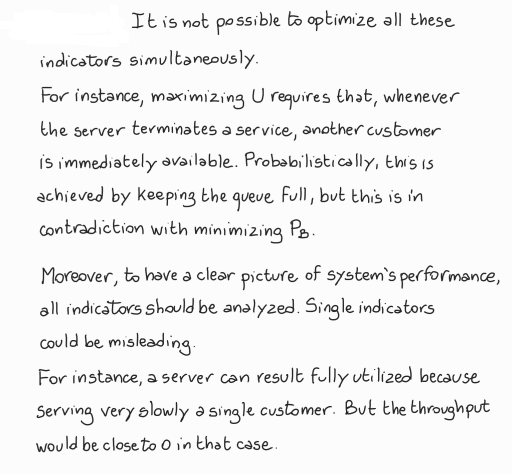 It is not possible to optimize all these
indicators simultaneously.
For instance, maximizing U requires that, whenever
the server terminates a service, another customer
is immediately available. Probabilistically, this is
achieved by keeping the queue full, but this is in
contradiction with minimizing PB.
Moreover, to have a clear picture of system's performance,
all indicators should be analyzed. Single indicators
could be misleading.
For instance, a server can result fully utilized because
serving very slowly a single customer. But the throughput
would be close to 0 in that case.